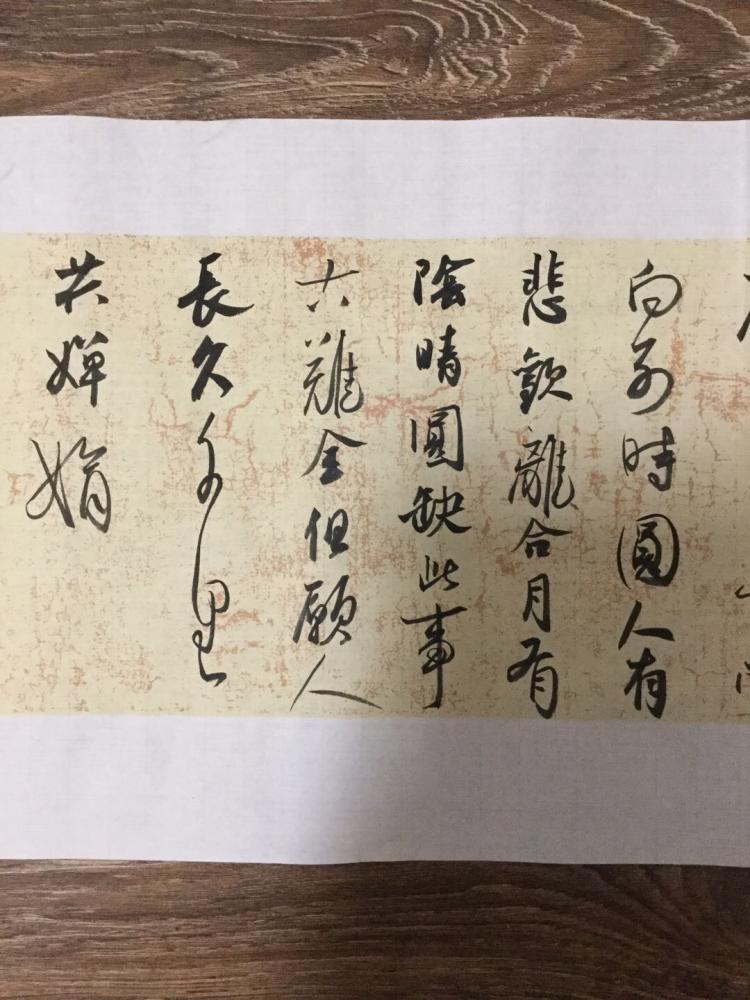 向別時圓人有
悲歡離合月有
陰晴圓缺此事
古難全但願人
長久千里
共嬋娟